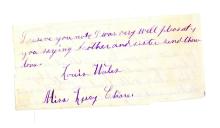 I receive you note I was very well pleased of
you saying Mother and sister send there
love.
Louis Wales
Miss Lucy Chase